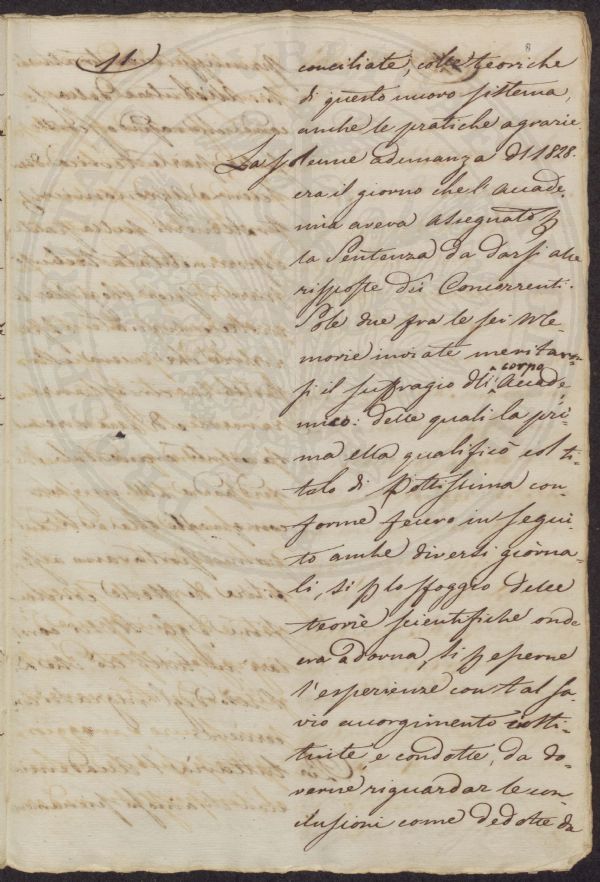 11
8
conciliate, colle teoriche
di questo nuovo sistema,
anche le pratiche agrarie.
La solenne adunanza di 1828.
era il giorno che l'Accade,
mia aveva assegnato p
la Sentenza da darsi alle
risposte dei Concorrenti.
Sole due fra le sei Me-
morie inviate meritaron
si il suffragio del corpo Accade,
mico: delle quali la pri-
ma ella qualificò col ti-
tolo di pottissima con-
forme fecero in segui-
to anche diversi giorna-
li, sì p lo sfoggio delle
teorie scientifiche onde
era adorna, sì p esserne
l'esperienze con tal sa-
vio accorgimento istti-
tuite, e condotte, da do-
verne riguardar le con-
clusioni come dedotte da